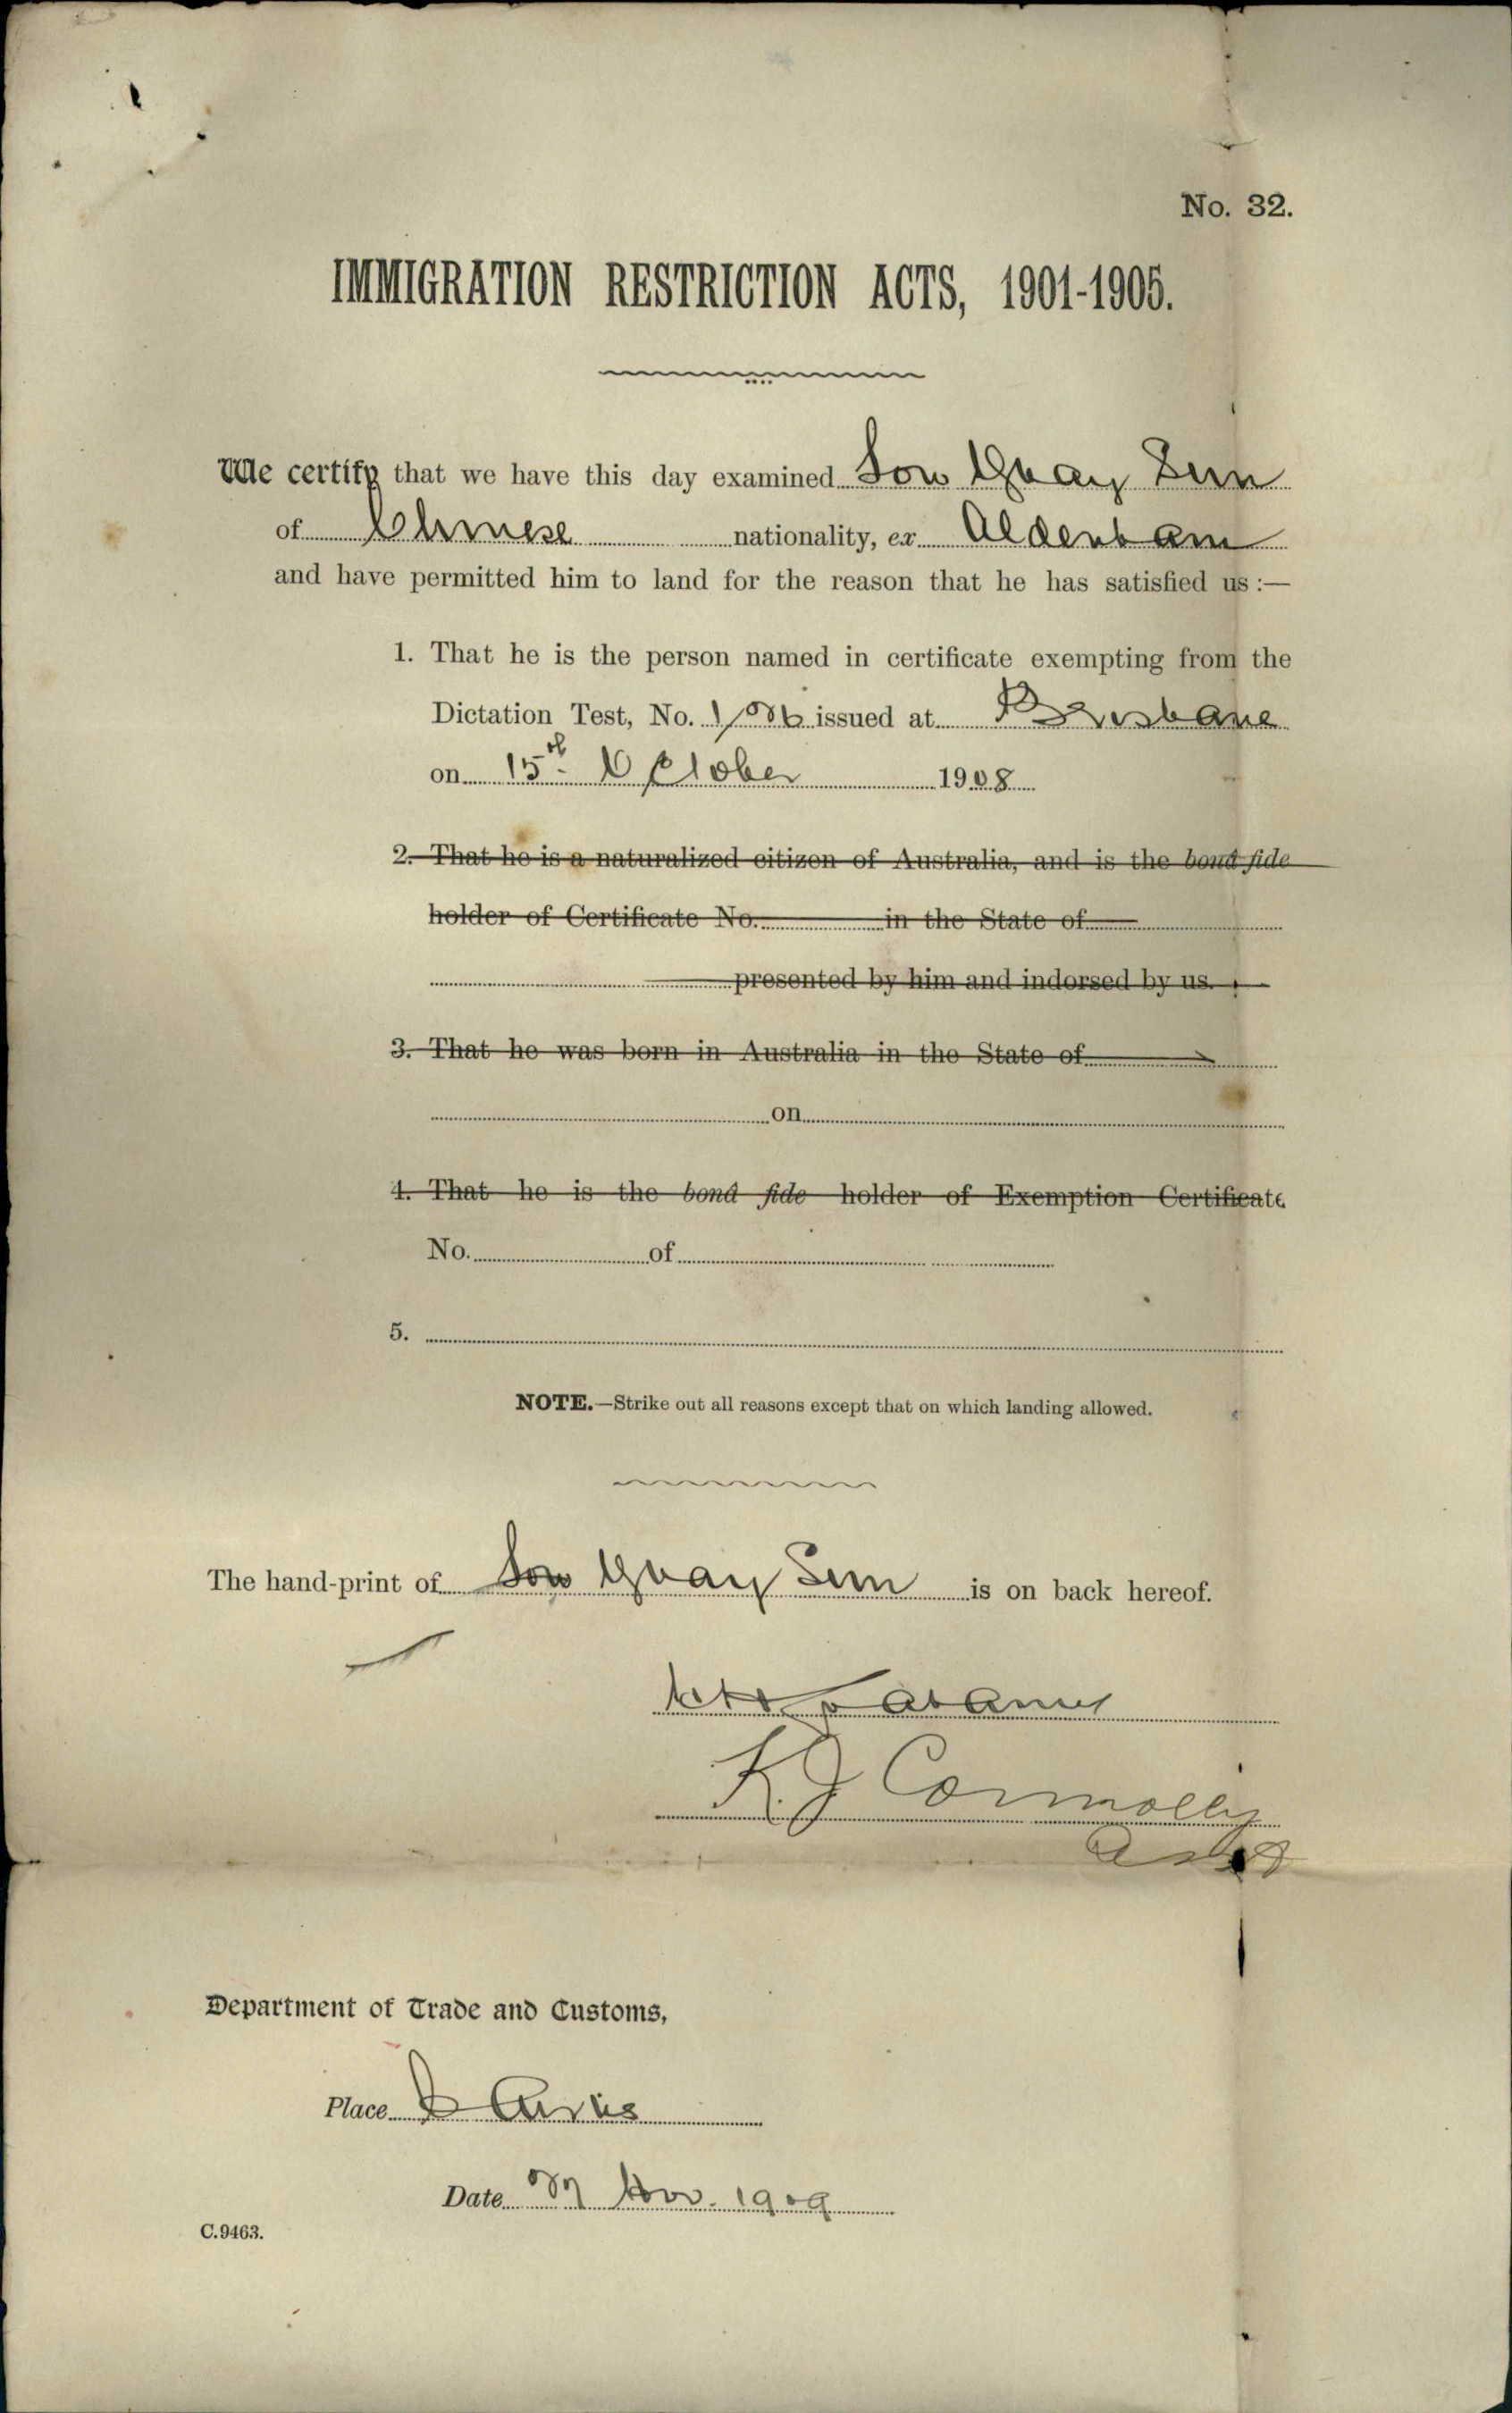 No. 32.
IMMIGRATION RESTRICTION ACTS, 1901-1905.
We certify that we have this day examined Sow Quay Sun
of Chinese nationality, ex Aldenham
and have permitted him to land for the reason that he has satisfied us :—
1. That he is the person named in certificate exempting from the
Dictation Test, No. issued at Brisbane
on 15th October 1908
2. That he is a naturalized citizen of Australia, and is the bonâ fide
holder of Certificate No. in the State of
presented by him and indorsed by us.
3. That he was born in Australia in the State of
on
4. That he is the bonâ fide holder of Exemption Certificate
No. of
5.
NOTE.—Strike out all reasons except that on which landing allowed.
The hand-print of Sow Quay Sun is on back hereof.
K.J Connolly
Department of Trade and Customs,
Place Cairns
Date Nov. 1909
C.9463.